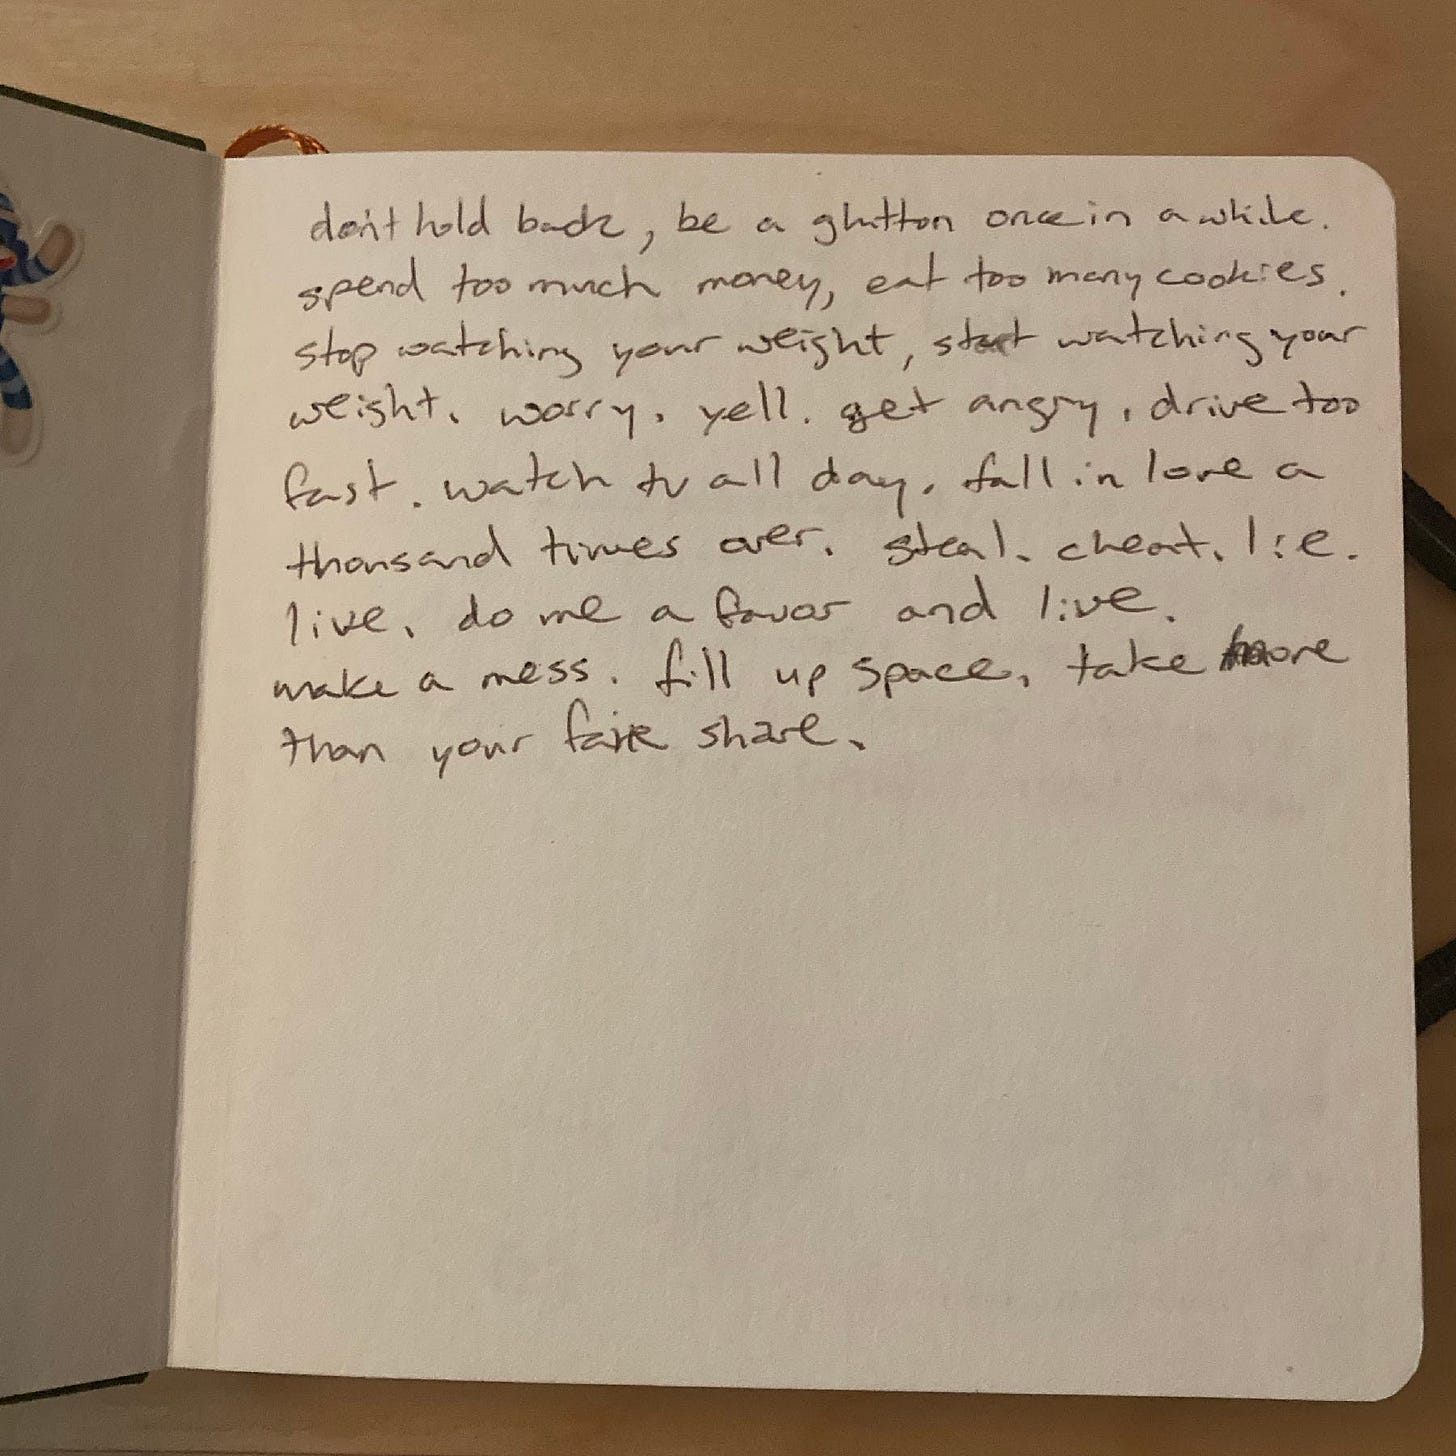 don't hold back, be a glutton once in a while.
spend too much money, eat too many cookies.
stop watching your weight, start watching your
weight. worry. yell. get angry. drive too
fast. watch tv all day. fall in love a
thousand times over. steal. cheat. lie.
live. do me a favor and live.
make a mess. fill up space. take more
than your faire share.